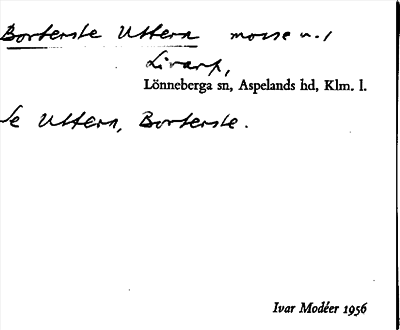 Borterste Uttern mosse n. 1
Livarp,
Lönneberga sn, Aspelands hd, Klm. l.
Se Uttern, Borterste.
Ivar Modéer 1956